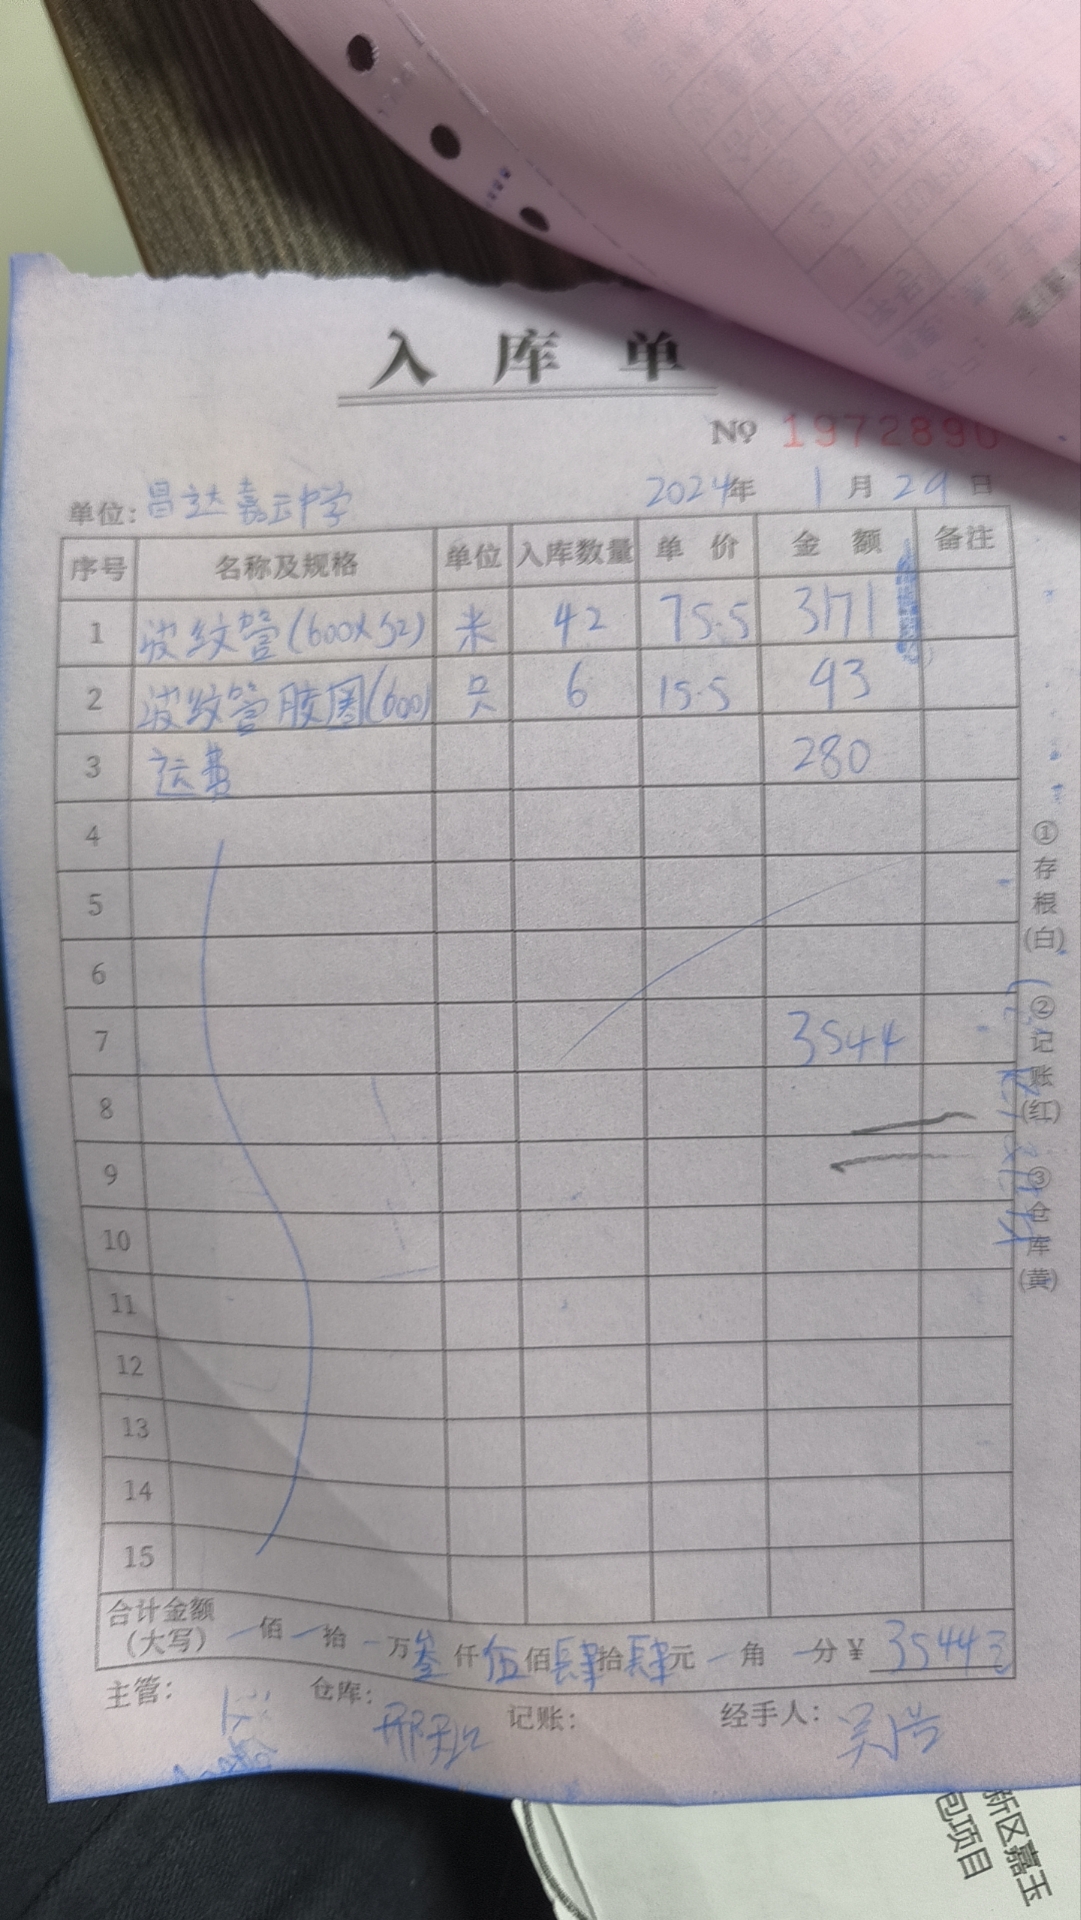 入库单
№ 1972890
单位: 昌达嘉云中学 2024年 1月29日
序号 名称及规格 单位 入库数量 单价 金额 备注
1 波纹管(600×52) 米 42 75.5 3171
2 波纹管胶圈(600) 只 6 15.5 93
3 运费 280
4
5
6
7 3544
8
9
10
11
12
13
14
15
合计金额(大写) 一佰一拾一万叁仟伍佰肆拾肆元一角一分 ¥ 3544元
主管: 仓库: 记账: 经手人: 吴浩
①存根(白) ②记账(红) ③仓库(黄)
新区嘉玉
包项目